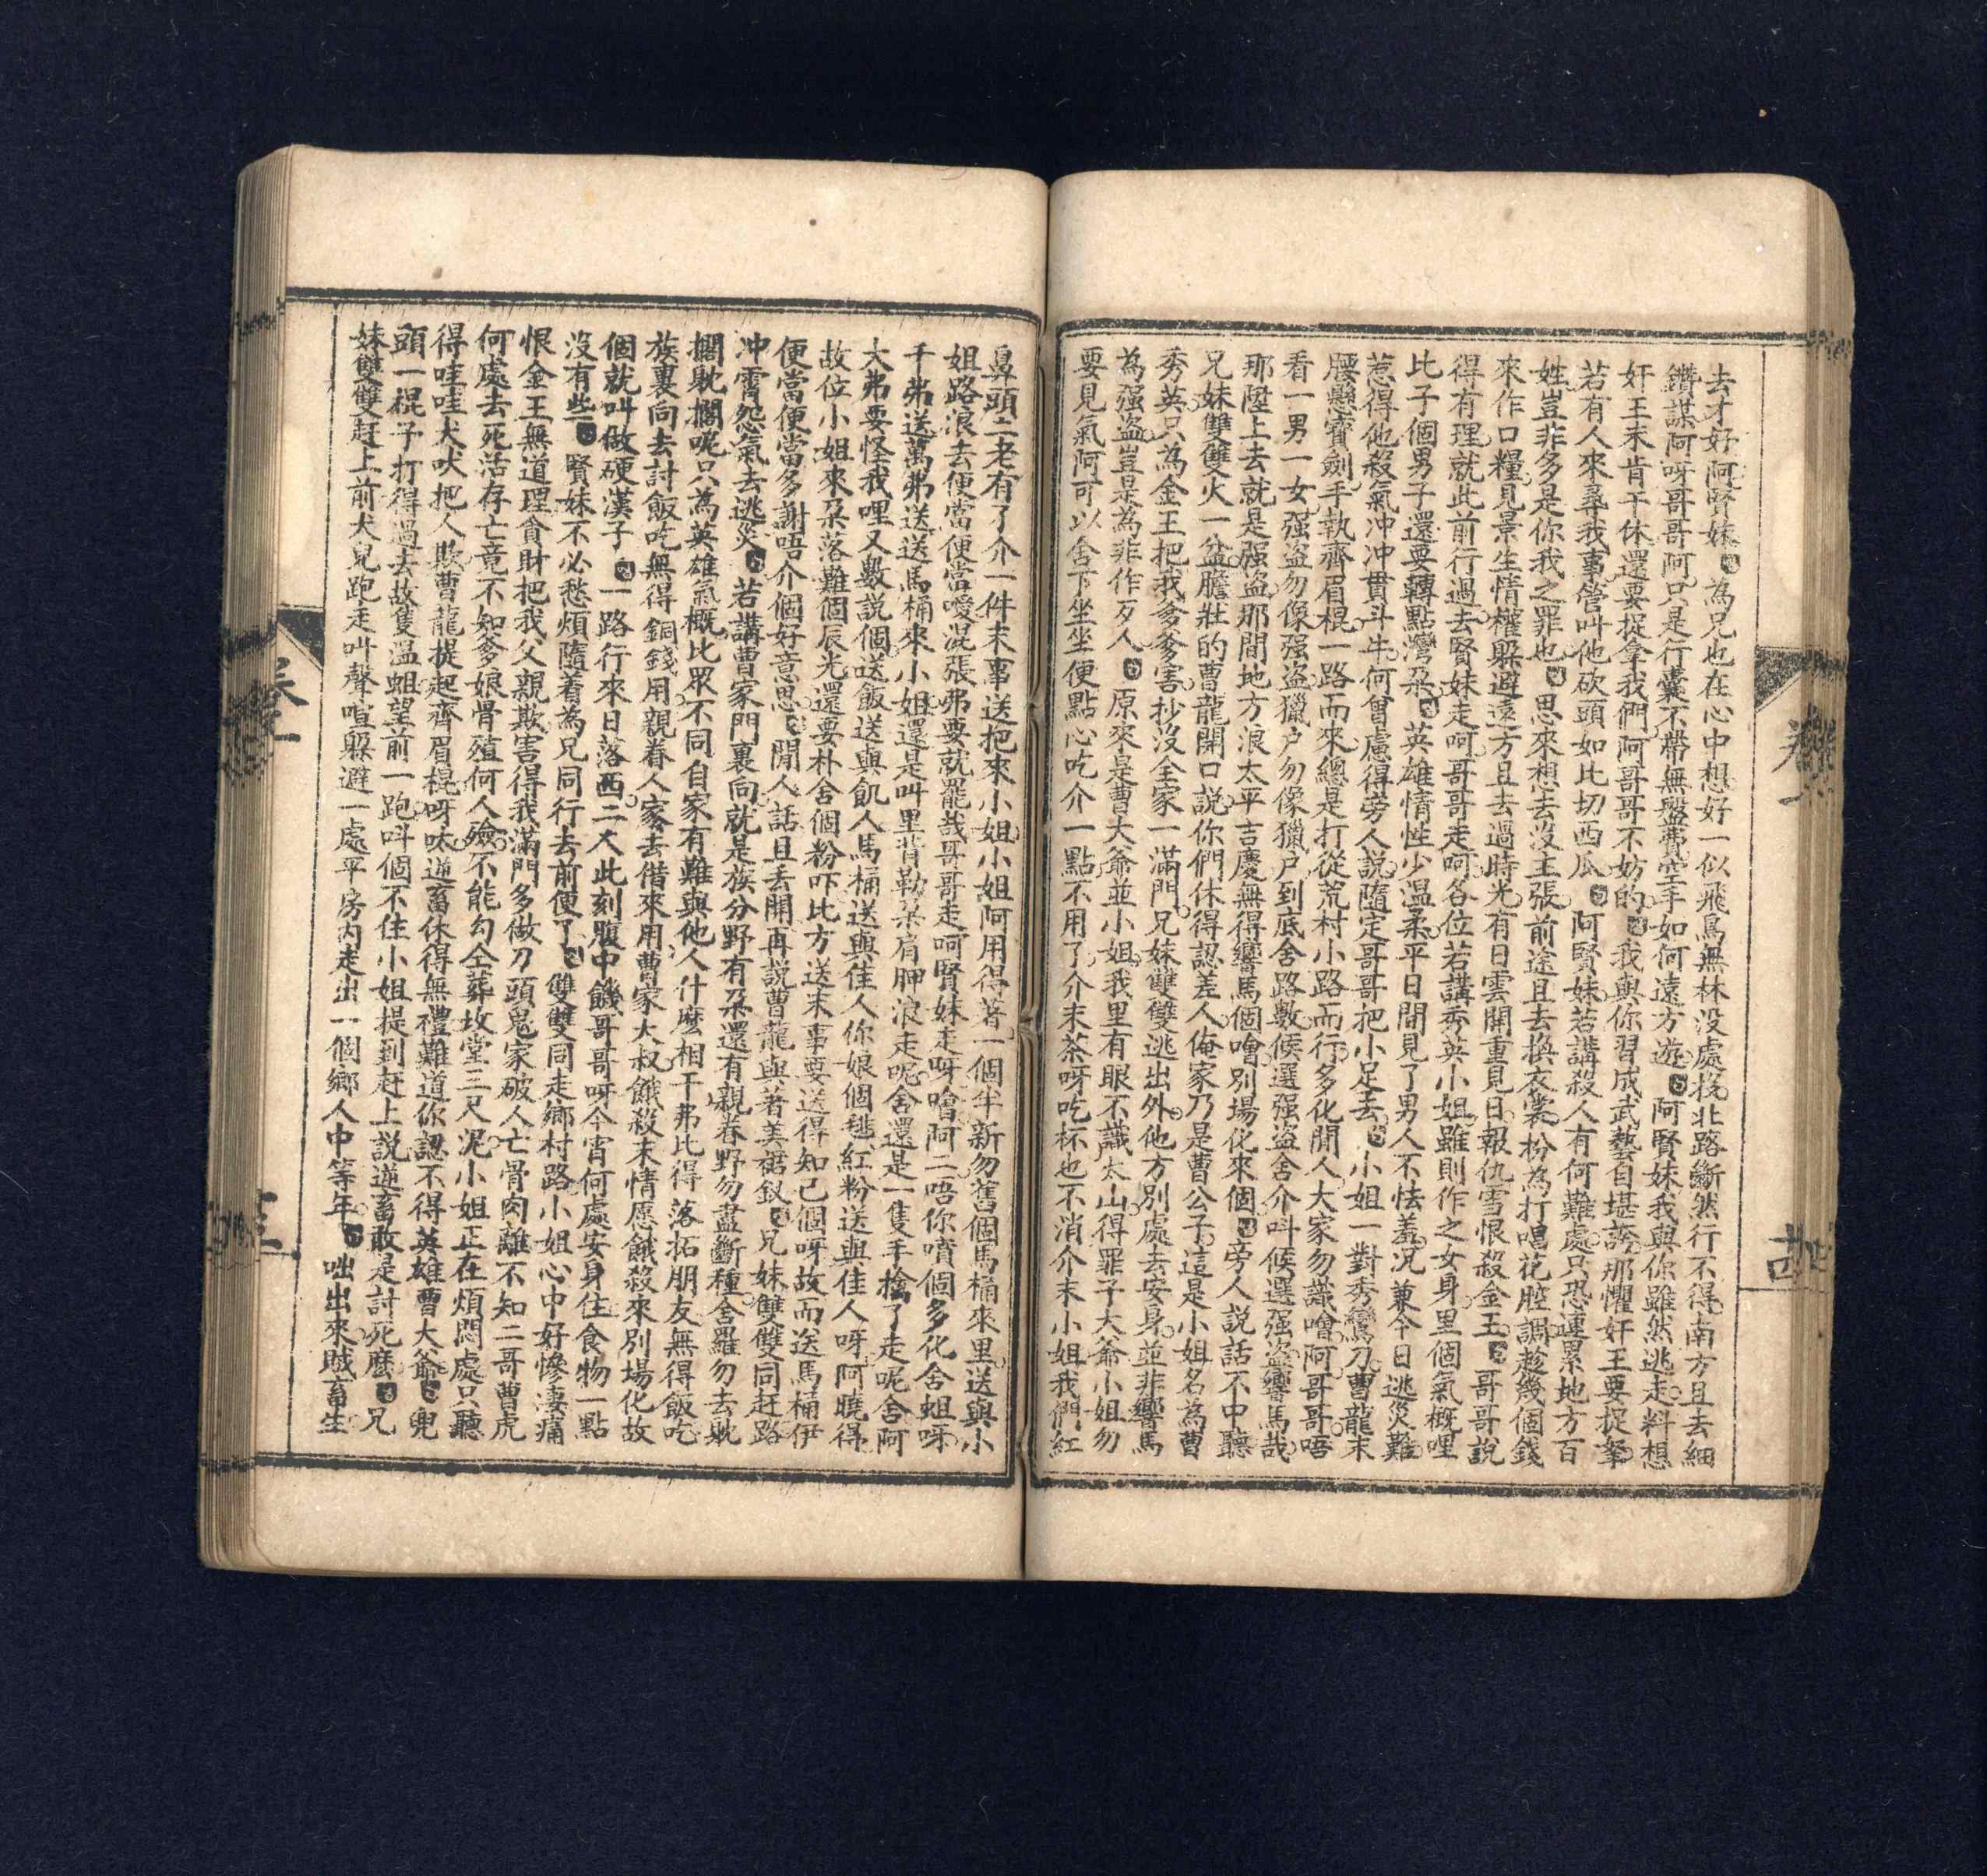 去才好阿賢妹為兄也在心中想好一似飛鳥無林沒處投北路斷然行不得南方且去細
鑽謀阿呀哥哥阿只是行囊不帶無盤費空手如何遠方遊阿賢妹我與你雖然逃走料想
奸王未肯干休還要捉拿我們阿哥哥不妨的我與你習成武藝自堪誇那懼奸王要捉拏
若有人來尋我事管叫他砍頭如比切西瓜阿賢妹若講殺人有何難處只恐連累地方百
姓豈非多是你我之罪也思來想去沒主張前途且去換衣裳扮為打唱花腔調趁幾個錢
來作口糧見景生情權躲避遠方且去過時光有日雲開重見日報仇雪恨殺金王哥哥說
得有理就此前行過去賢妹走呵哥哥走呵各位若講秀英小姐雖則作之女身里個氣概哩
比子個男子還要轉點灣朶英雄情性少温柔平日間見了男人不怯羞况兼今日逃災難
惹得他殺氣冲冲貫斗牛何曾慮得旁人說隨定哥哥把小足去小姐一對秀鸞刀曹龍末
腰懸寶劍手執齊眉棍一路而來總是打從荒村小路而行多化閒人大家勿識噲阿哥哥唔
看一男一女强盗勿像强盗獵户勿像獵户到底舍路數候選强盗舍介呌候選强盗響馬哉
那陞上去就是强盗那間地方浪太平吉慶無得響馬個噲別場化來個旁人説話不中聽
兄妹雙雙火一盆膽壯的曹龍開口說你們休得認差人俺家乃是曹公子這是小姐名為曹
秀英只為金王把我爹爹害抄沒全家一滿門兄妹雙雙逃出外他方別處去安身並非響馬
為强盗豈是為非作歹人原來是曹大爺並小姐我里有眼不識太山得罪子大爺小姐勿
要見氣阿可以舍下坐坐便點心吃介一點不用了介末茶呀吃杯也不消介末小姐我們紅
鼻頭二老有了介一件末事送把來小姐小姐阿用得著一個半新勿舊個馬桶來里送與小
姐路浪去便當便當噯混張弗要就罷哉哥哥走呵賢妹走呀噲阿二唔你嘖個多化舍蛆呀
千弗送萬弗送送馬桶來小姐還是叫里背勒朶肩胛浪走呢舍還是一隻手擒了走呢舍阿
大弗要怪我哩又數說個送飯送與飢人馬桶送與佳人你娘個毴紅粉送與佳人呀阿曉得
故位小姐來朶落難個辰光還要朴舍個粉吓比方送末事要送得知己個呀故而送馬桶伊
便當便當多謝唔介個好意思閒人話且丢開再説曹龍與著美裙釵兄妹雙雙同赶路
冲霄怨氣去逃災若講曹家門裏向就是族分野有朶還有親眷野勿盡斷種舍羅勿去躭
擱躭擱呢只為英雄氣概比眾不同自家有難與他人什麼相干弗比得落拓朋友無得飯吃
族裏向去討飯吃無得銅錢用親眷人家去借來用曹家大叔餓殺末情愿餓殺來別場化故
個就叫做硬漢子一路行來日落西二人此刻腹中饑哥哥呀今宵何處安身住食物一點
沒有些賢妹不必愁煩隨着為兄同行去前便了雙雙同走鄉村路小姐心中好慘凄痛
恨金王無道理貪財把我父親欺害得我滿門多做刀頭鬼家破人亡骨肉離不知二哥曹虎
何處去死活存亡竟不知爹娘骨殖何人殮不能勾仝葬坟堂三尺泥小姐正在煩悶處只聽
得哇哇犬吠把人欺曹龍提起齊眉棍呀呔逆畜休得無禮難道你認不得英雄曹大爺兜
頭一棍子打得過去故隻温蛆望前一跑呌個不住小姐提到赶上說逆畜敢是討死麽兄
妹雙雙赶上前犬兒跑走叫聲喧躲避一處平房內走出一個鄉人中等年咄出來賊畜生
卷一